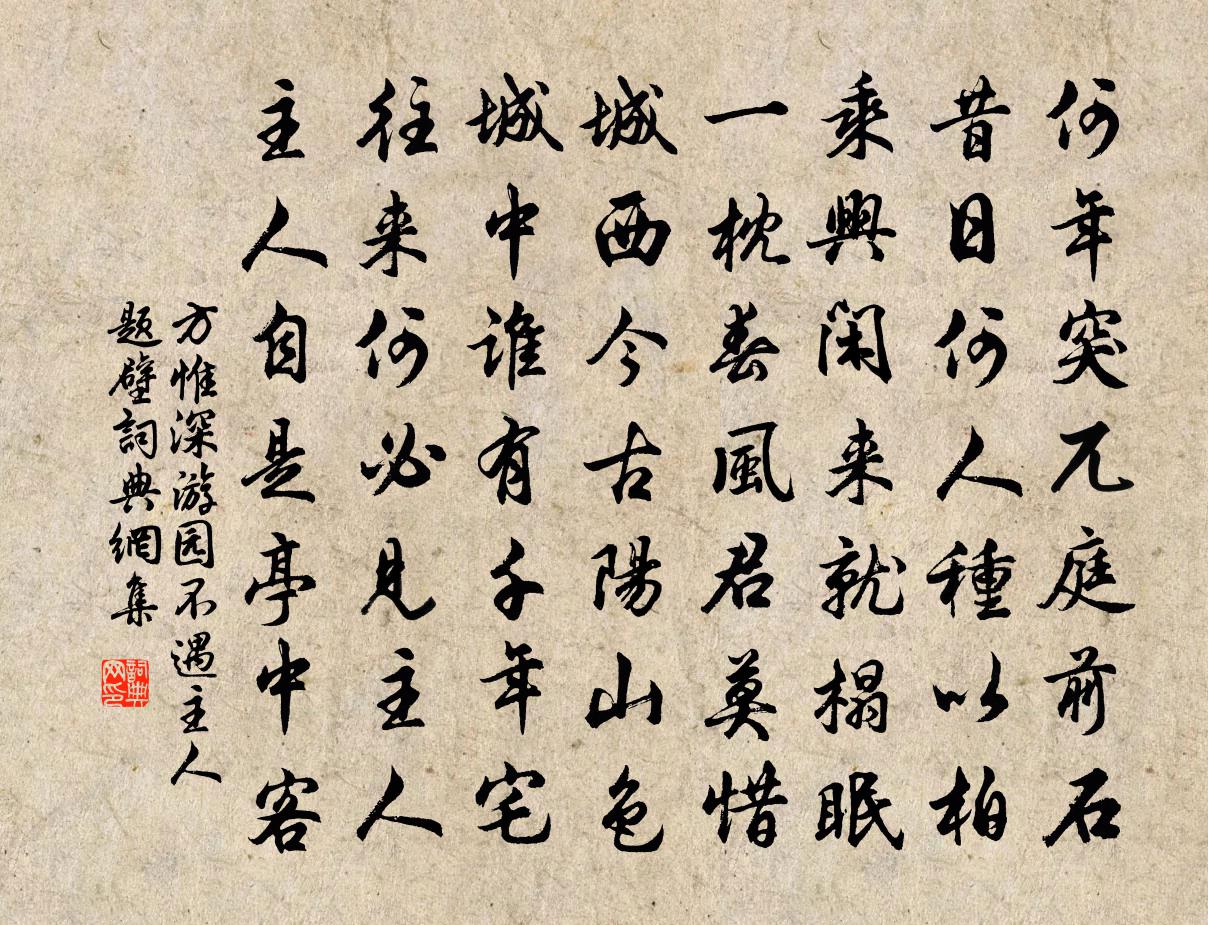 何年突兀庭前石
昔日何人種以柏
乘興閑来就榻眠
一枕春風君莫惜
城西今古陽山色
城中誰有千年宅
往来何必見主人
主人自是亭中客
方惟深游园不遇主人
题壁詞典網集
詞典
网印